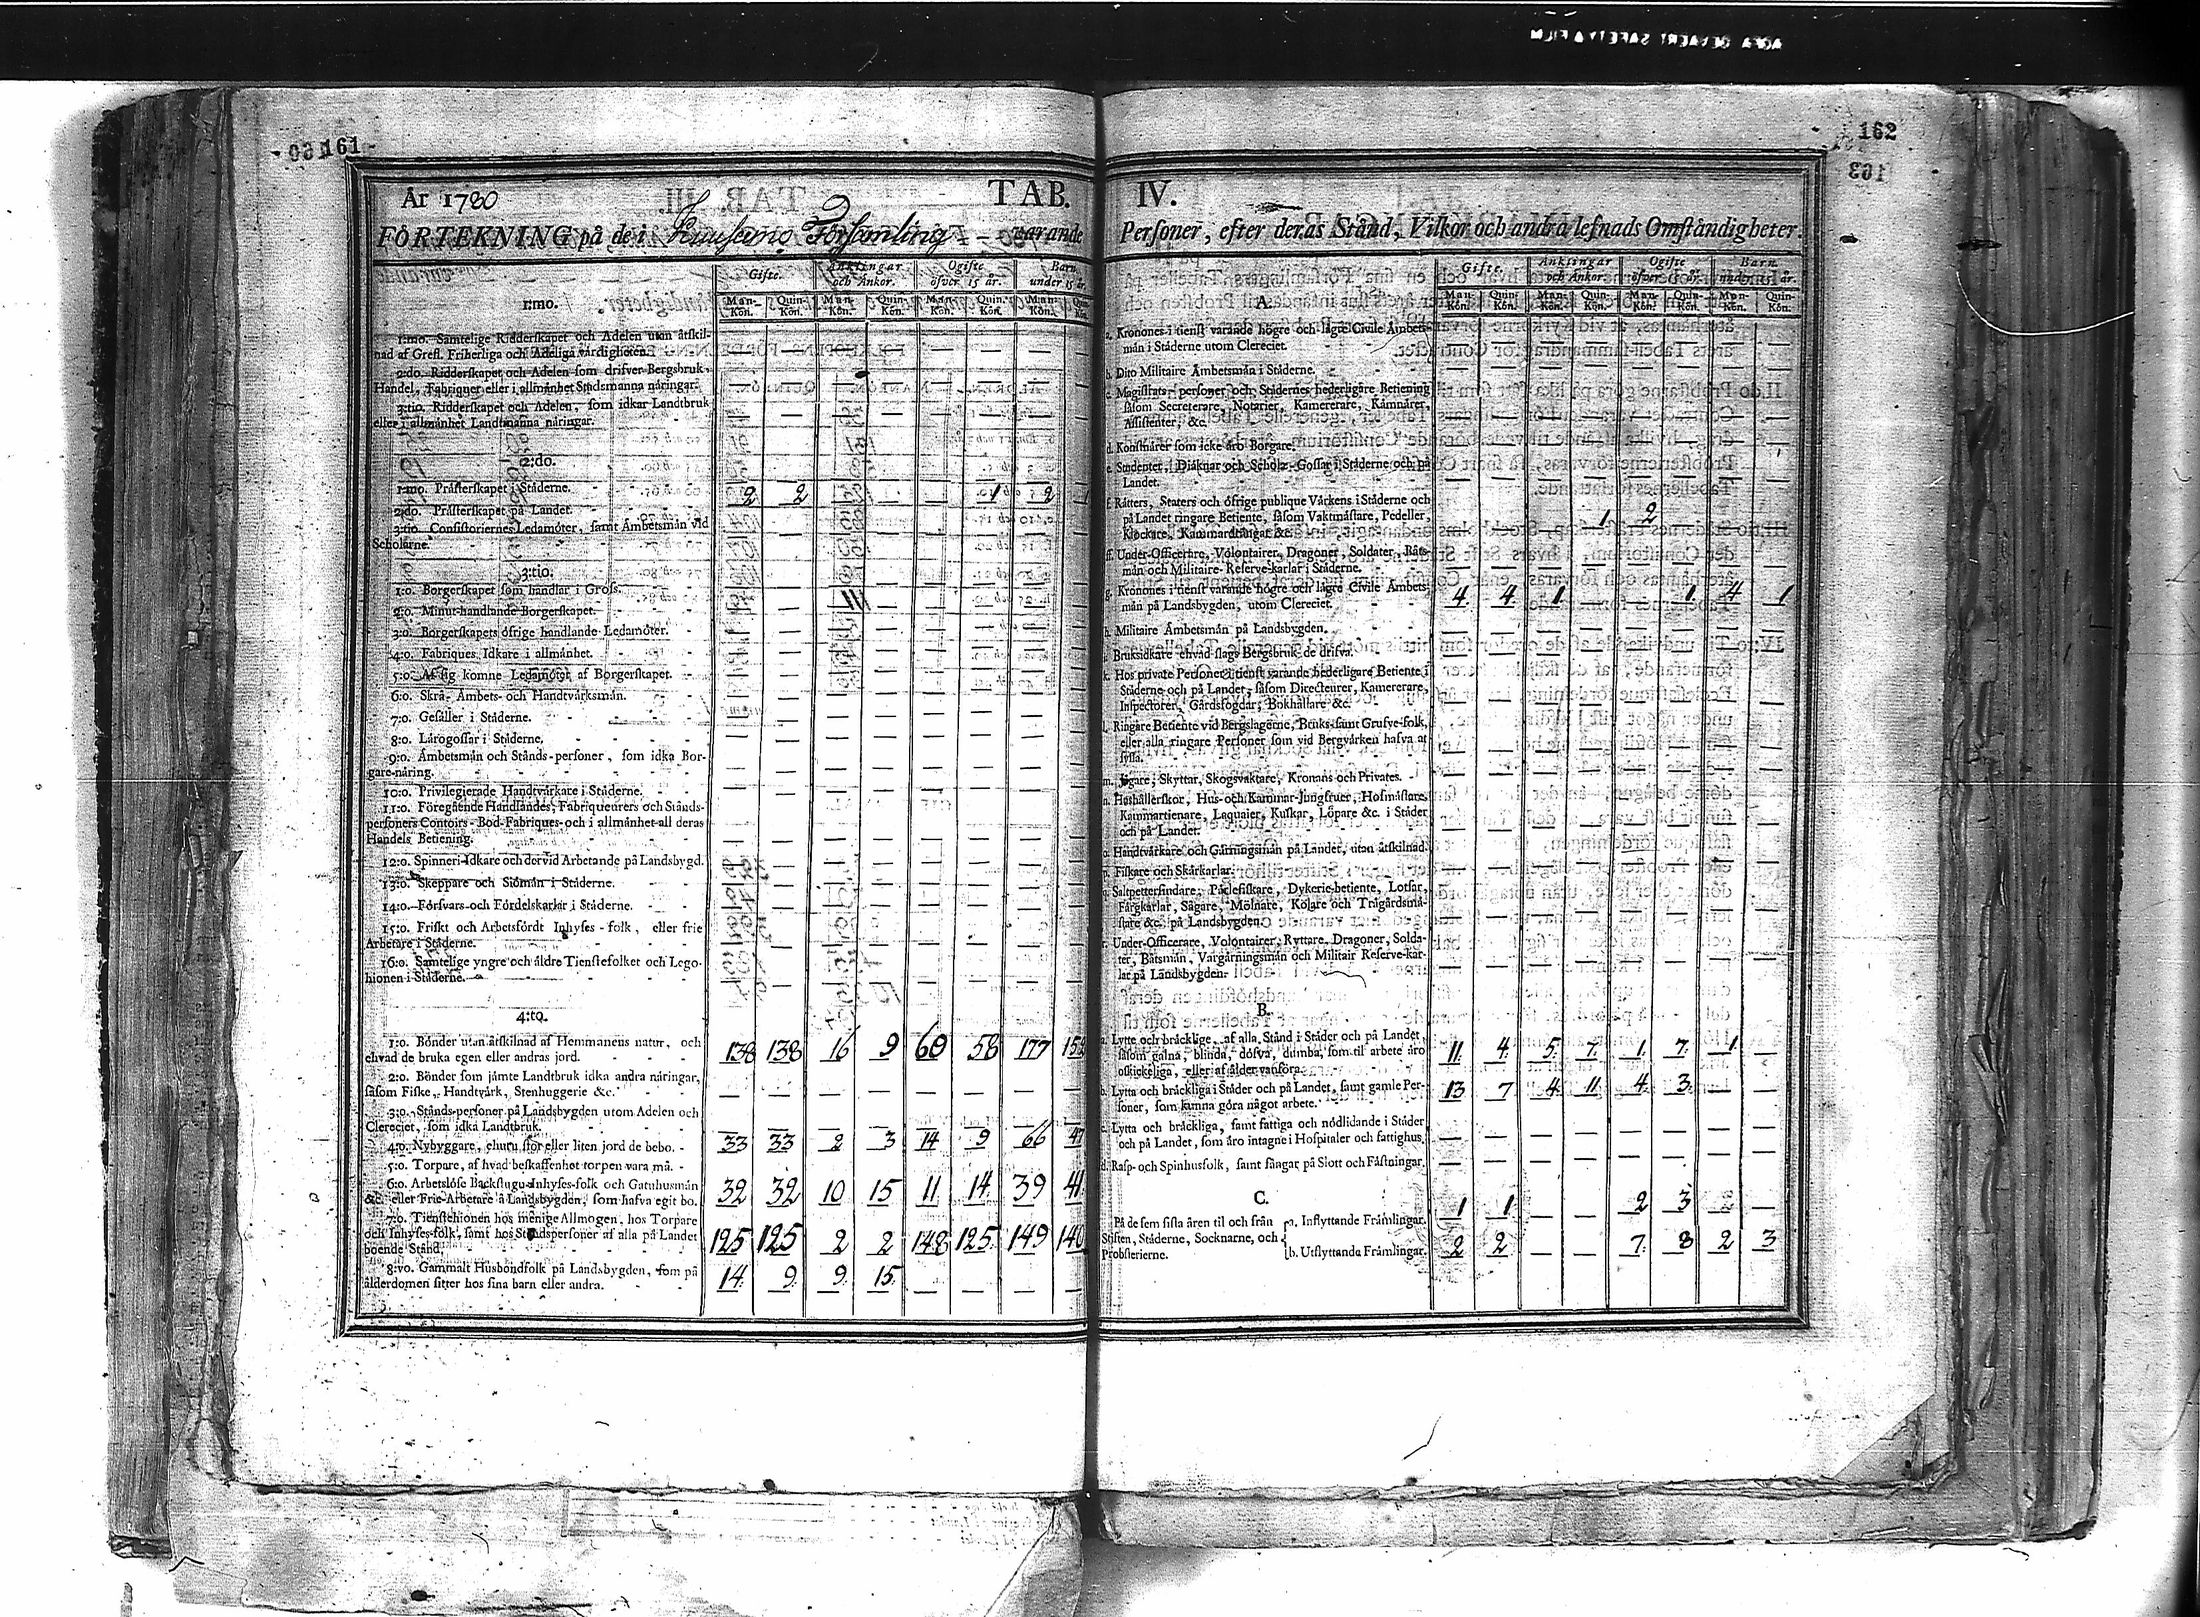 161
År 1780 TAB.
FÖRTEKNING på de i Kuusamo Församling varande
Gifte. Änklingar och Änkor. Ogifte öfver 15 år. Barn under 15 år.
Man-Kön. Quin-Kön. Man-Kön. Quin-Kön. Man-Kön. Quin-Kön. Man-Kön. Quin-Kön.
1:mo.
1:mo. Samtelige Ridderskapet och Adelen utan åtskil-
nad af Grefl. Friherliga och Adeliga värdigheten. — — — — — — — —
2:do. Ridderskapet och Adelen som drifver Bergsbruk,
Handel, Fabriquer eller i allmänhet Stadsmanna näringar. — — — — — — — —
3:tio. Ridderskapet och Adelen, som idkar Landtbruk
eller i allmänhet Landtmanna näringar. — — — — — — — —
2:do.
1:mo. Prästerskapet i Städerne.
2:do. Prästerskapet på Landet. 2 2 1 2
3:tio. Consistoriernes Ledamöter, samt Ämbetsmän vid
Scholarne.
3:tio.
1:o. Borgerskapet som handlar i Gross.
2:o. Minut-handlande Borgerskapet.
3:o. Borgerskapets öfrige handlande Ledamöter.
4:o. Fabriques Idkare i allmänhet.
5:o. Af sig komne Ledamöter af Borgerskapet.
6:o. Skrå- Ämbets- och Handtvärksmän.
7:o. Gesäller i Städerne.
8:o. Lärogossar i Städerne.
9:o. Ämbetsmän och Stånds-personer, som idka Bor-
gare-näring.
10:o. Privilegierade Handtvärkare i Städerne.
11:o. Föregående Handlandes, Fabriqueurers och Stånds-
personers Contoirs- Bod- Fabriques- och i allmänhet all deras
Handels Betiening.
12:o. Spinneri-Idkare och dervid Arbetande på Landsbygd.
13:o. Skeppare och Siömän i Städerne.
14:o. Försvars- och Fördelskarlar i Städerne.
15:o. Friskt och Arbetsfördt Inhyses-folk, eller frie
Arbetare i Städerne.
16:o. Samtelige yngre och äldre Tienstefolket och Lego-
hionen i Städerne.
4:to.
1:o. Bönder utan åtskilnad af Hemmanens natur, och
ehvad de bruka egen eller andras jord. 138 138 16 9 60 58 177 152
2:o. Bönder som jämte Landtbruk idka andra näringar,
såsom Fiske, Handtvärk, Stenhuggerie &c. — — — — — — — —
3:o. Stånds-personer på Landsbygden utom Adelen och
Clereciet, som idka Landtbruk.
4:o. Nybyggare, ehuru stor eller liten jord de bebo. 33 33 2 3 14 9 66 47
5:o. Torpare, af hvad beskaffenhet torpen vara må.
6:o. Arbetslöse Backstugu- Inhyses-folk och Gatuhusmän
&c. eller Frie-Arbetare å Landsbygden, som hafva egit bo. 32 32 10 15 11 14 39 41
7:o. Tienstehionen hos menige Allmogen, hos Torpare
och Inhyses-folk, samt hos Ståndspersoner af alla på Landet
boende Stånd. 125 125 2 2 148 125 149 140
8:vo. Gammalt Husbondfolk på Landsbygden, som på
ålderdomen sitter hos sina barn eller andra. 14 9 9 15 — — — —
162
IV.
Personer, efter deras Stånd, Vilkor och andra lefnads Omständigheter.
Gifte. Änklingar och Änkor. Ogifte öfver 15 år. Barn under 15 år.
Man-Kön. Quin-Kön. Man-Kön. Quin-Kön. Man-Kön. Quin-Kön. Man-Kön. Quin-Kön.
A.
a. Kronones i tienst varande högre och lägre Civile Ämbets-
män i Städerne utom Clereciet.
b. Dito Militaire Ämbetsmän i Städerne.
c. Magistrats-personer och Städernes hederligare Betiening
såsom Secreterare, Notarier, Kamererare, Kämnärer,
Assistenter, &c.
d. Konstnärer som icke äro Borgare.
e. Studenter, Diäknar och Schole-Gossar i Städerne och på
Landet.
f. Rätters, Staters och öfrige publique Värkens i Städerne och
på Landet ringare Betiente, såsom Vaktmästare, Pedeller,
Klockare, Kammardrängar &c. 1 2
ff. Under-Officerare, Volontairer, Dragoner, Soldater, Båts-
män och Militaire-Reserve-karlar i Städerne.
g. Kronones i tienst varande högre och lägre Civile Ämbets-
män på Landsbygden, utom Clereciet. 4 4 1 1 4 1
h. Militaire Ämbetsmän på Landsbygden.
i. Bruksidkare ehvad slags Bergsbruk de drifva.
k. Hos private Personer i tienst varande hederligare Betiente i
Städerne och på Landet, såsom Directeurer, Kamererare,
Inspectorer, Gårdsfogdar, Bokhållare &c.
l. Ringare Betiente vid Bergslagerne, Bruks- samt Grufve-folk,
eller alla ringare Personer som vid Bergvärken hafva at
syssla.
m. Jägare, Skyttar, Skogsvaktare, Kronans och Privates.
n. Hushållerskor, Hus- och Kammar-Jungfruer, Hofmästare,
Kammartienare, Laquaier, Kuskar, Löpare &c. i Städer
och på Landet.
o. Handtvärkare och Gärningsmän på Landet, utan åtskilnad.
p. Fiskare och Skärkarlar.
q. Saltpettersiudare, Pärlefiskare, Dykerie-betiente, Lotsar,
Färgkarlar, Sågare, Mölnare, Kolare och Trägårdsmä-
stare &c. på Landsbygden.
r. Under-Officerare, Volontairer, Ryttare, Dragoner, Solda-
ter, Båtsmän, Vargärningsmän och Militair Reserve-kar-
lar på Landsbygden.
B.
a. Lytte och bräcklige, af alla Stånd i Städer och på Landet,
såsom galna, blinda, döfva, dumba, som til arbete äro
oskickeliga, eller af ålder vanföra. 11 4 5 7 1 7 1 —
b. Lytta och bräckliga i Städer och på Landet, samt gamle Per-
soner, som kunna göra något arbete. 13 7 4 11 4 3 — —
c. Lytta och bräckliga, samt fattiga och nödlidande i Städer
och på Landet, som äro intagne i Hospitaler och fattighus. — — — — — — — —
d. Rasp- och Spinhusfolk, samt fångar på Slott och Fästningar. — — — — — — — —
C.
På de fem sista åren til och från
Stiften, Städerne, Socknarne, och
Probsterierne.
a. Inflyttande Främlingar. 1 1 2 3
b. Utflyttande Främlingar. 2 2 — — 7 8 2 3